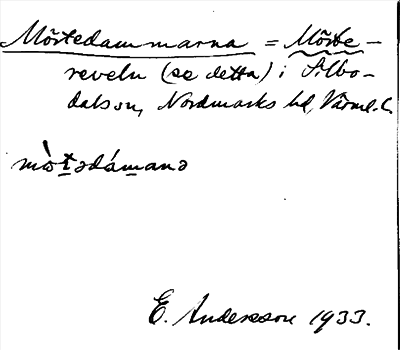 Mörtedammarna = Mörte-
reveln (se detta) i Silbo-
dalssn, Nordmarks hd, Värml. l.
mò̱ṯədáma̱nə
E. Andersson 1933.